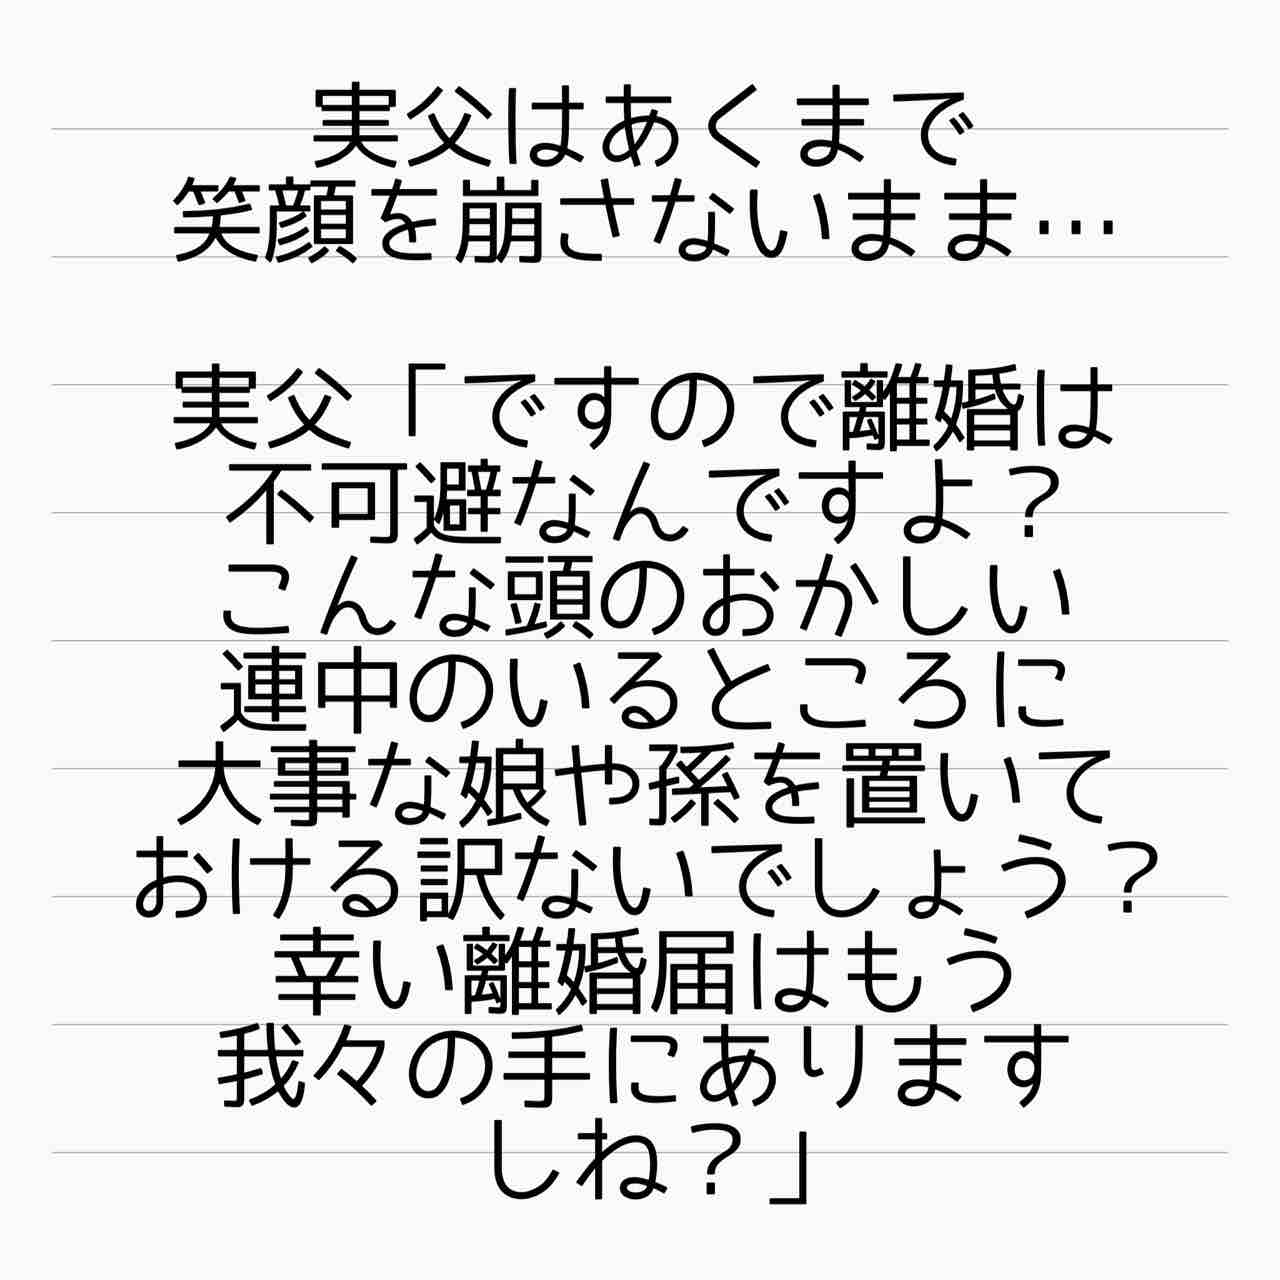 実父はあくまで
笑顔を崩さないまま…
実父「ですので離婚は
不可避なんですよ？
こんな頭のおかしい
連中のいるところに
大事な娘や孫を置いて
おける訳ないでしょう？
幸い離婚届はもう
我々の手にあります
しね？」